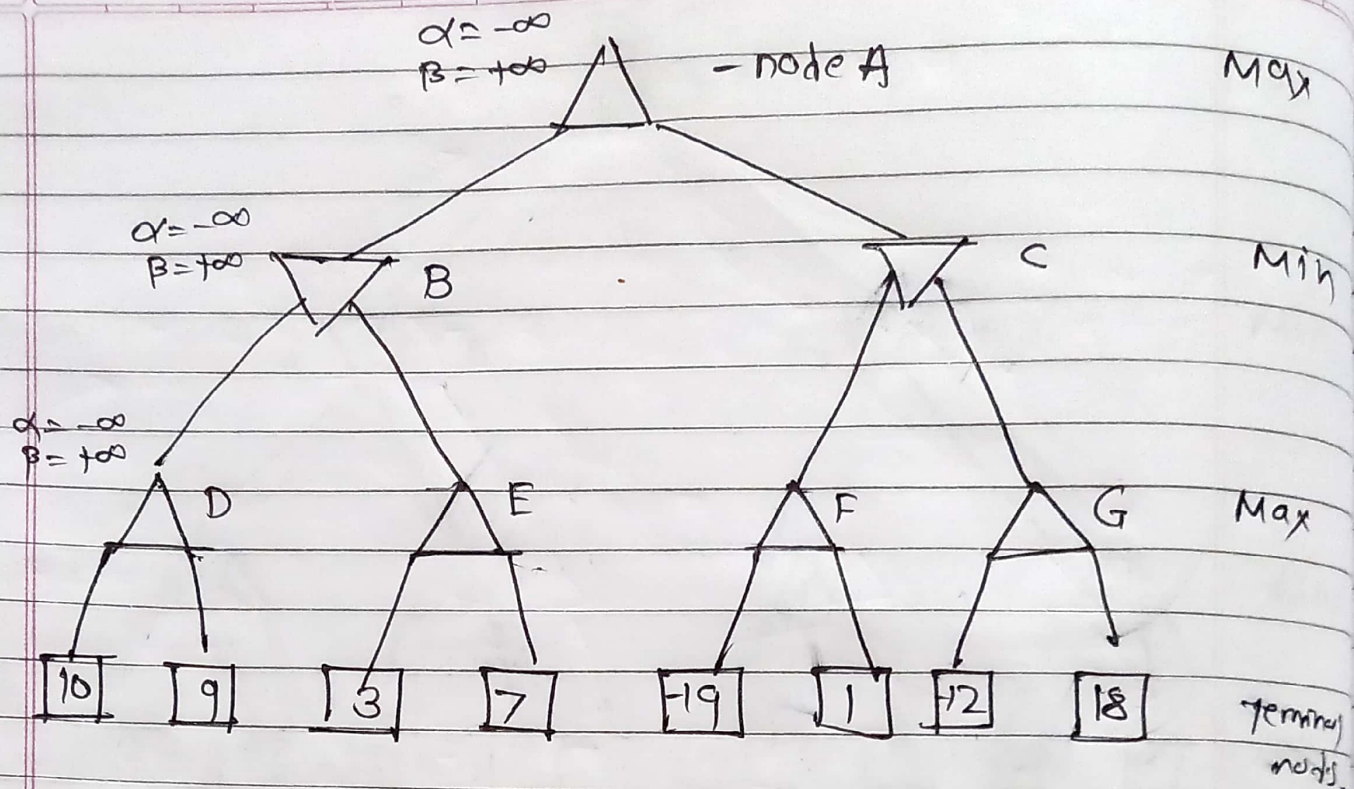 α = -∞
β = +∞
- node A
Max
α = -∞
β = +∞
B
C
Min
α = -∞
β = +∞
D
E
F
G
Max
10
9
3
7
-19
1
-12
18
Terminal
nodes